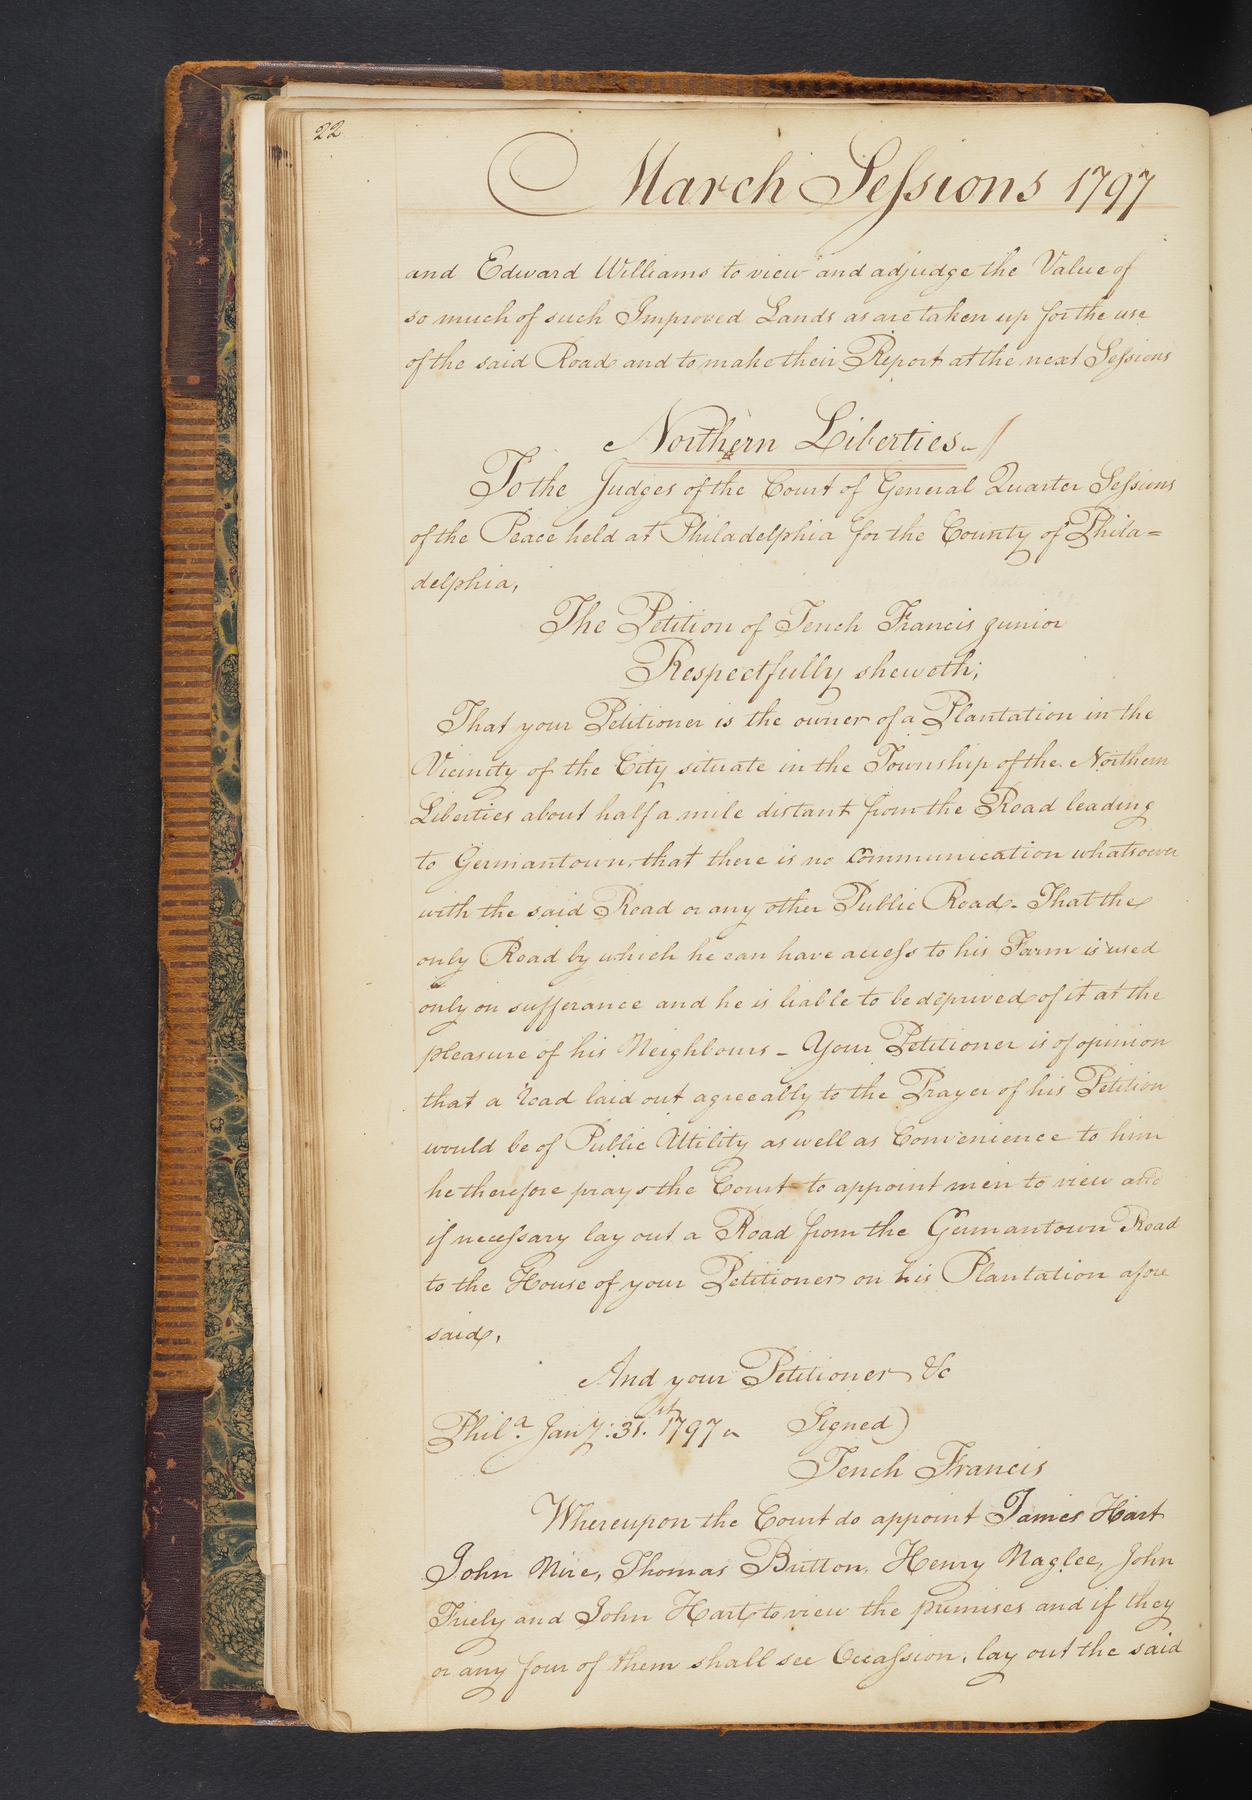 22
March Sessions 1797
and Edward Williams to view and adjudge the Value of
so much of such Improved Lands as are taken up for the use
of the said Road and to make their Report at the next Sessions
Northern Liberties
To the Judges of the Court of General Quarter Sessions
of the Peace held at Philadelphia for the County of Phila=
delphia,
The Petition of Tench Francis junior
Respectfully sheweth;
That your Petitioner is the owner of a Plantation in the
Vicinity of the City situate in the Township of the Northern
Liberties about half a mile distant from the Road leading
to Germantown, that there is no Communication whatsoever
with the said Road or any other Public Road - That the
only Road by which he can have access to his Farm is used
only on sufferance and he is liable to be deprived of it at the
pleasure of his Neighbours - Your Petitioner is of opinion
that a road laid out agreeably to the Prayer of his Petition
would be of Public Utility as well as Convenience to him
he therefore prays the Court to appoint men to view and
if necessary lay out a Road from the Germantown Road
to the House of your Petitioner on his Plantation afore
said,
And your Petitioner &c
Phila. Jany: 31st. 1797 Signed)
Tench Francis
Whereupon the Court do appoint James Hart
John Thomas Britton, Henry Naglee, John
and John Hart to view the premises and if they
or any four of them shall see Occassion, lay out the said